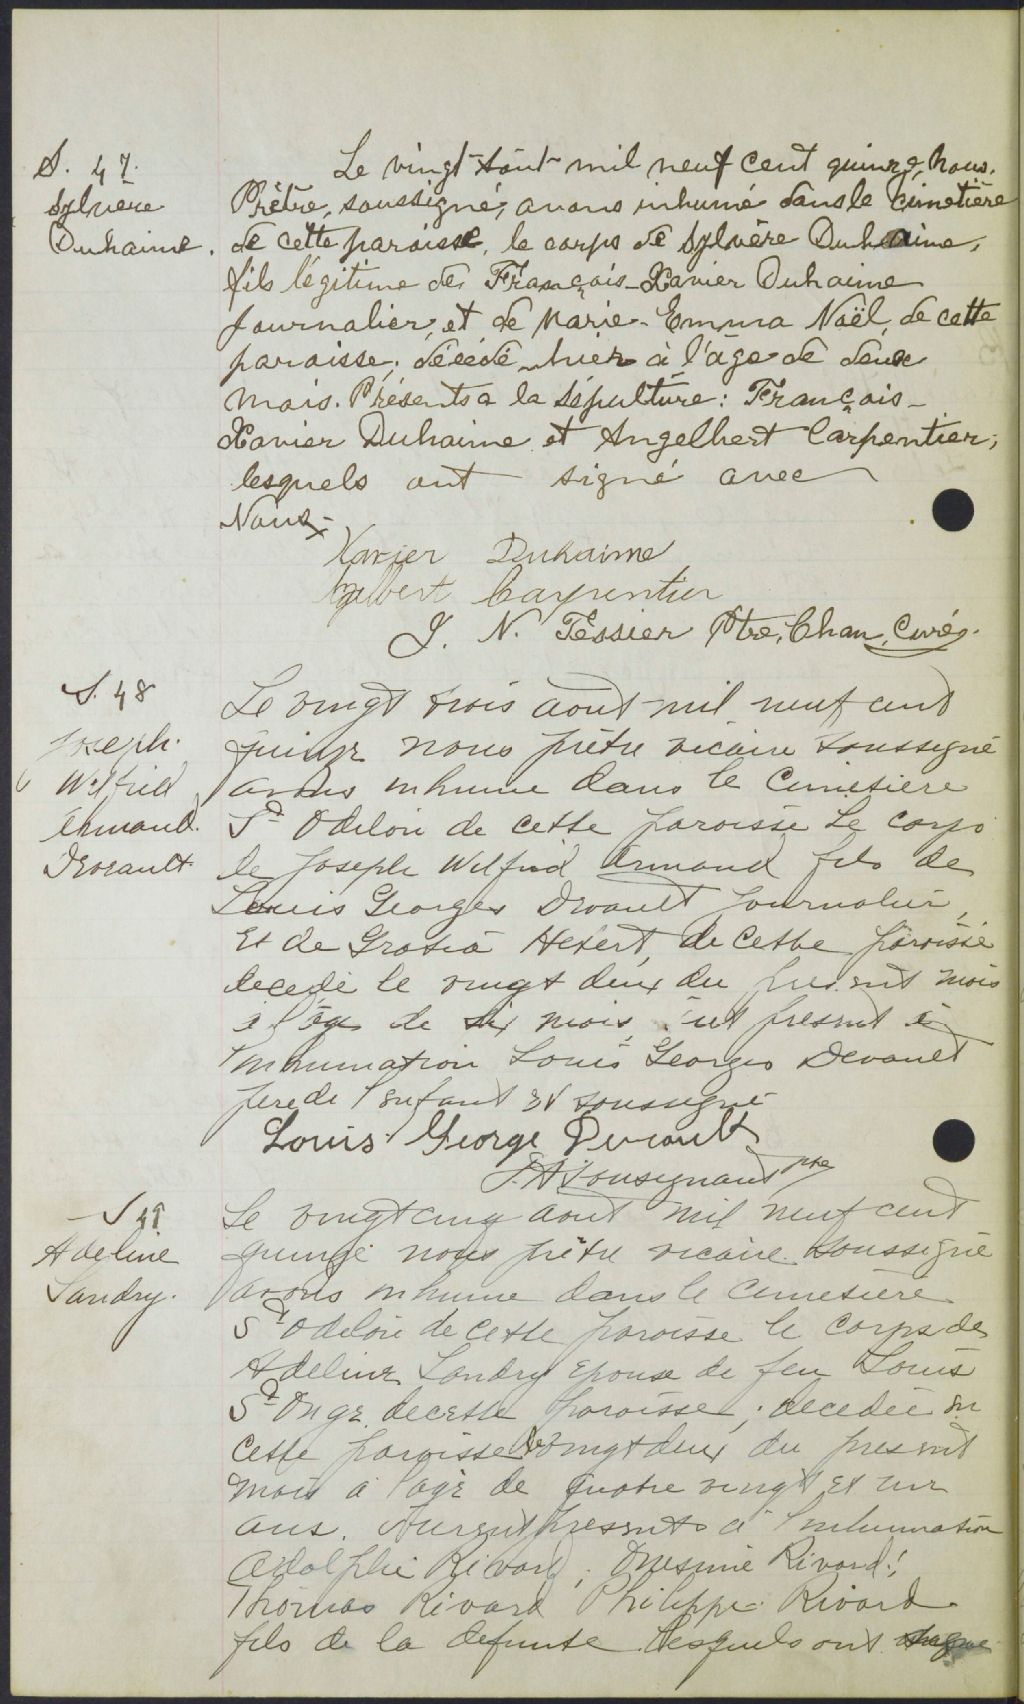 S. 47.
Sylvère
Duhaime.
Le vingt Août mil neuf cent quinze, Nous,
Prêtre, soussigné, avons inhumé dans le cimetière
de cette paroisse, le corps de Sylvère Duhaime,
fils légitime de François-Xavier Duhaime
Journalier, et de Marie-Emma Noël, de cette
paroisse, décédé hier à l'âge de deux
mois. Présents a la sépulture: François-
Xavier Duhaime et Angelbert Carpentier,
lesquels ont signé avec
Nous.
Xavier Duhaime
Carpentier
J. N. Tessier Ptre, Chan, Curé.
S. 48
Joseph
Wilfrid
Armand
Drouault
Le vingt trois aout mil neuf cent
quinze nous prêtre vicaire soussigné
avons inhume dans le Cimetière
St Odilon de cette paroisse le corps
de Joseph Wilfrid Armand fils de
Louis Georges Drouault journalier,
et de Grasia Hebert, de cette paroisse
decedé le vingt deux du present mois
à l'âge de six mois, fut present à
l'inhumation Louis Georges Drouault
père de l'enfant et soussigné
Louis George Drouault
Tousignant ptre
S 49
Adeline
Landry.
Le vingt cinq aout mil neuf cent
quinze nous prêtre vicaire soussigné
avons inhume dans le Cimetière
St Odilon de cette paroisse le corps de
Adeline Landry epouse de feu Louis
St Onge de cette paroisse; decedée en
cette paroisse le vingt deux du present
mois à l'agé de quatre vingt et un
ans. Furent presents à l'inhumation
Adolphe Rivard; Onesime Rivard;
Thomas Rivard Philippe Rivard
fils de la defunte lesquels ont